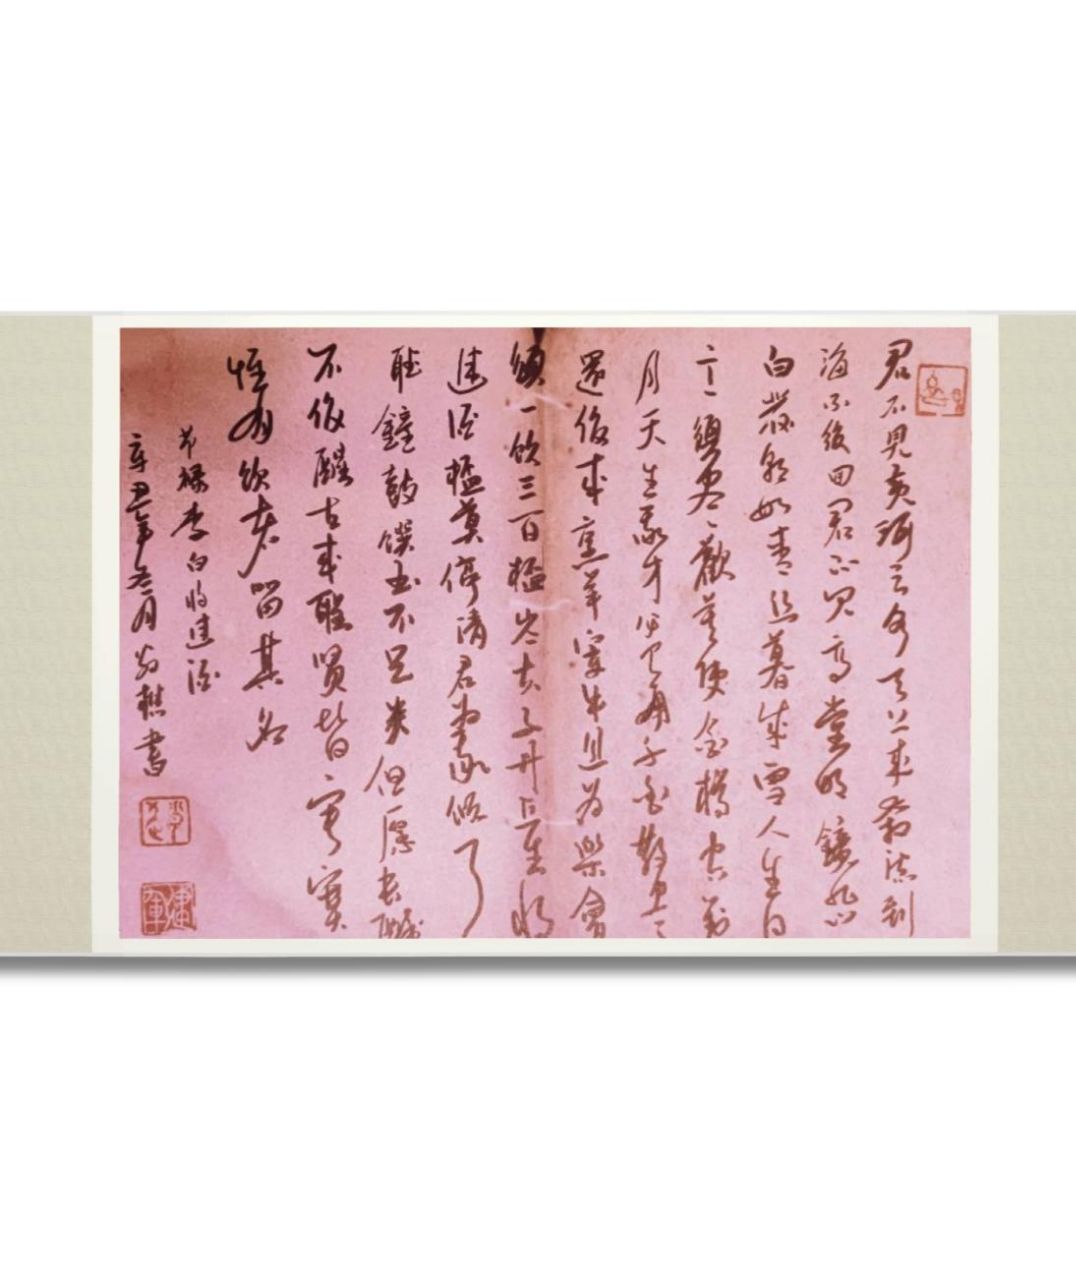 君不見黄河之水天上来奔流到
海不復回君不見高堂明鏡悲
白髮朝如青丝暮成雪人生得
意須尽歡莫使金樽空對
月天生我才必有用千金散尽
還復来烹羊宰牛且为樂會
須一飲三百杯岑夫子丹丘生将
進酒杯莫停請君為我倾耳
聽鐘鼓馔玉不足贵但愿长醉
不復醒古来聖贤皆寂寞
惟有饮者留其名
节録李白将進酒
辛丑年冬月樵書